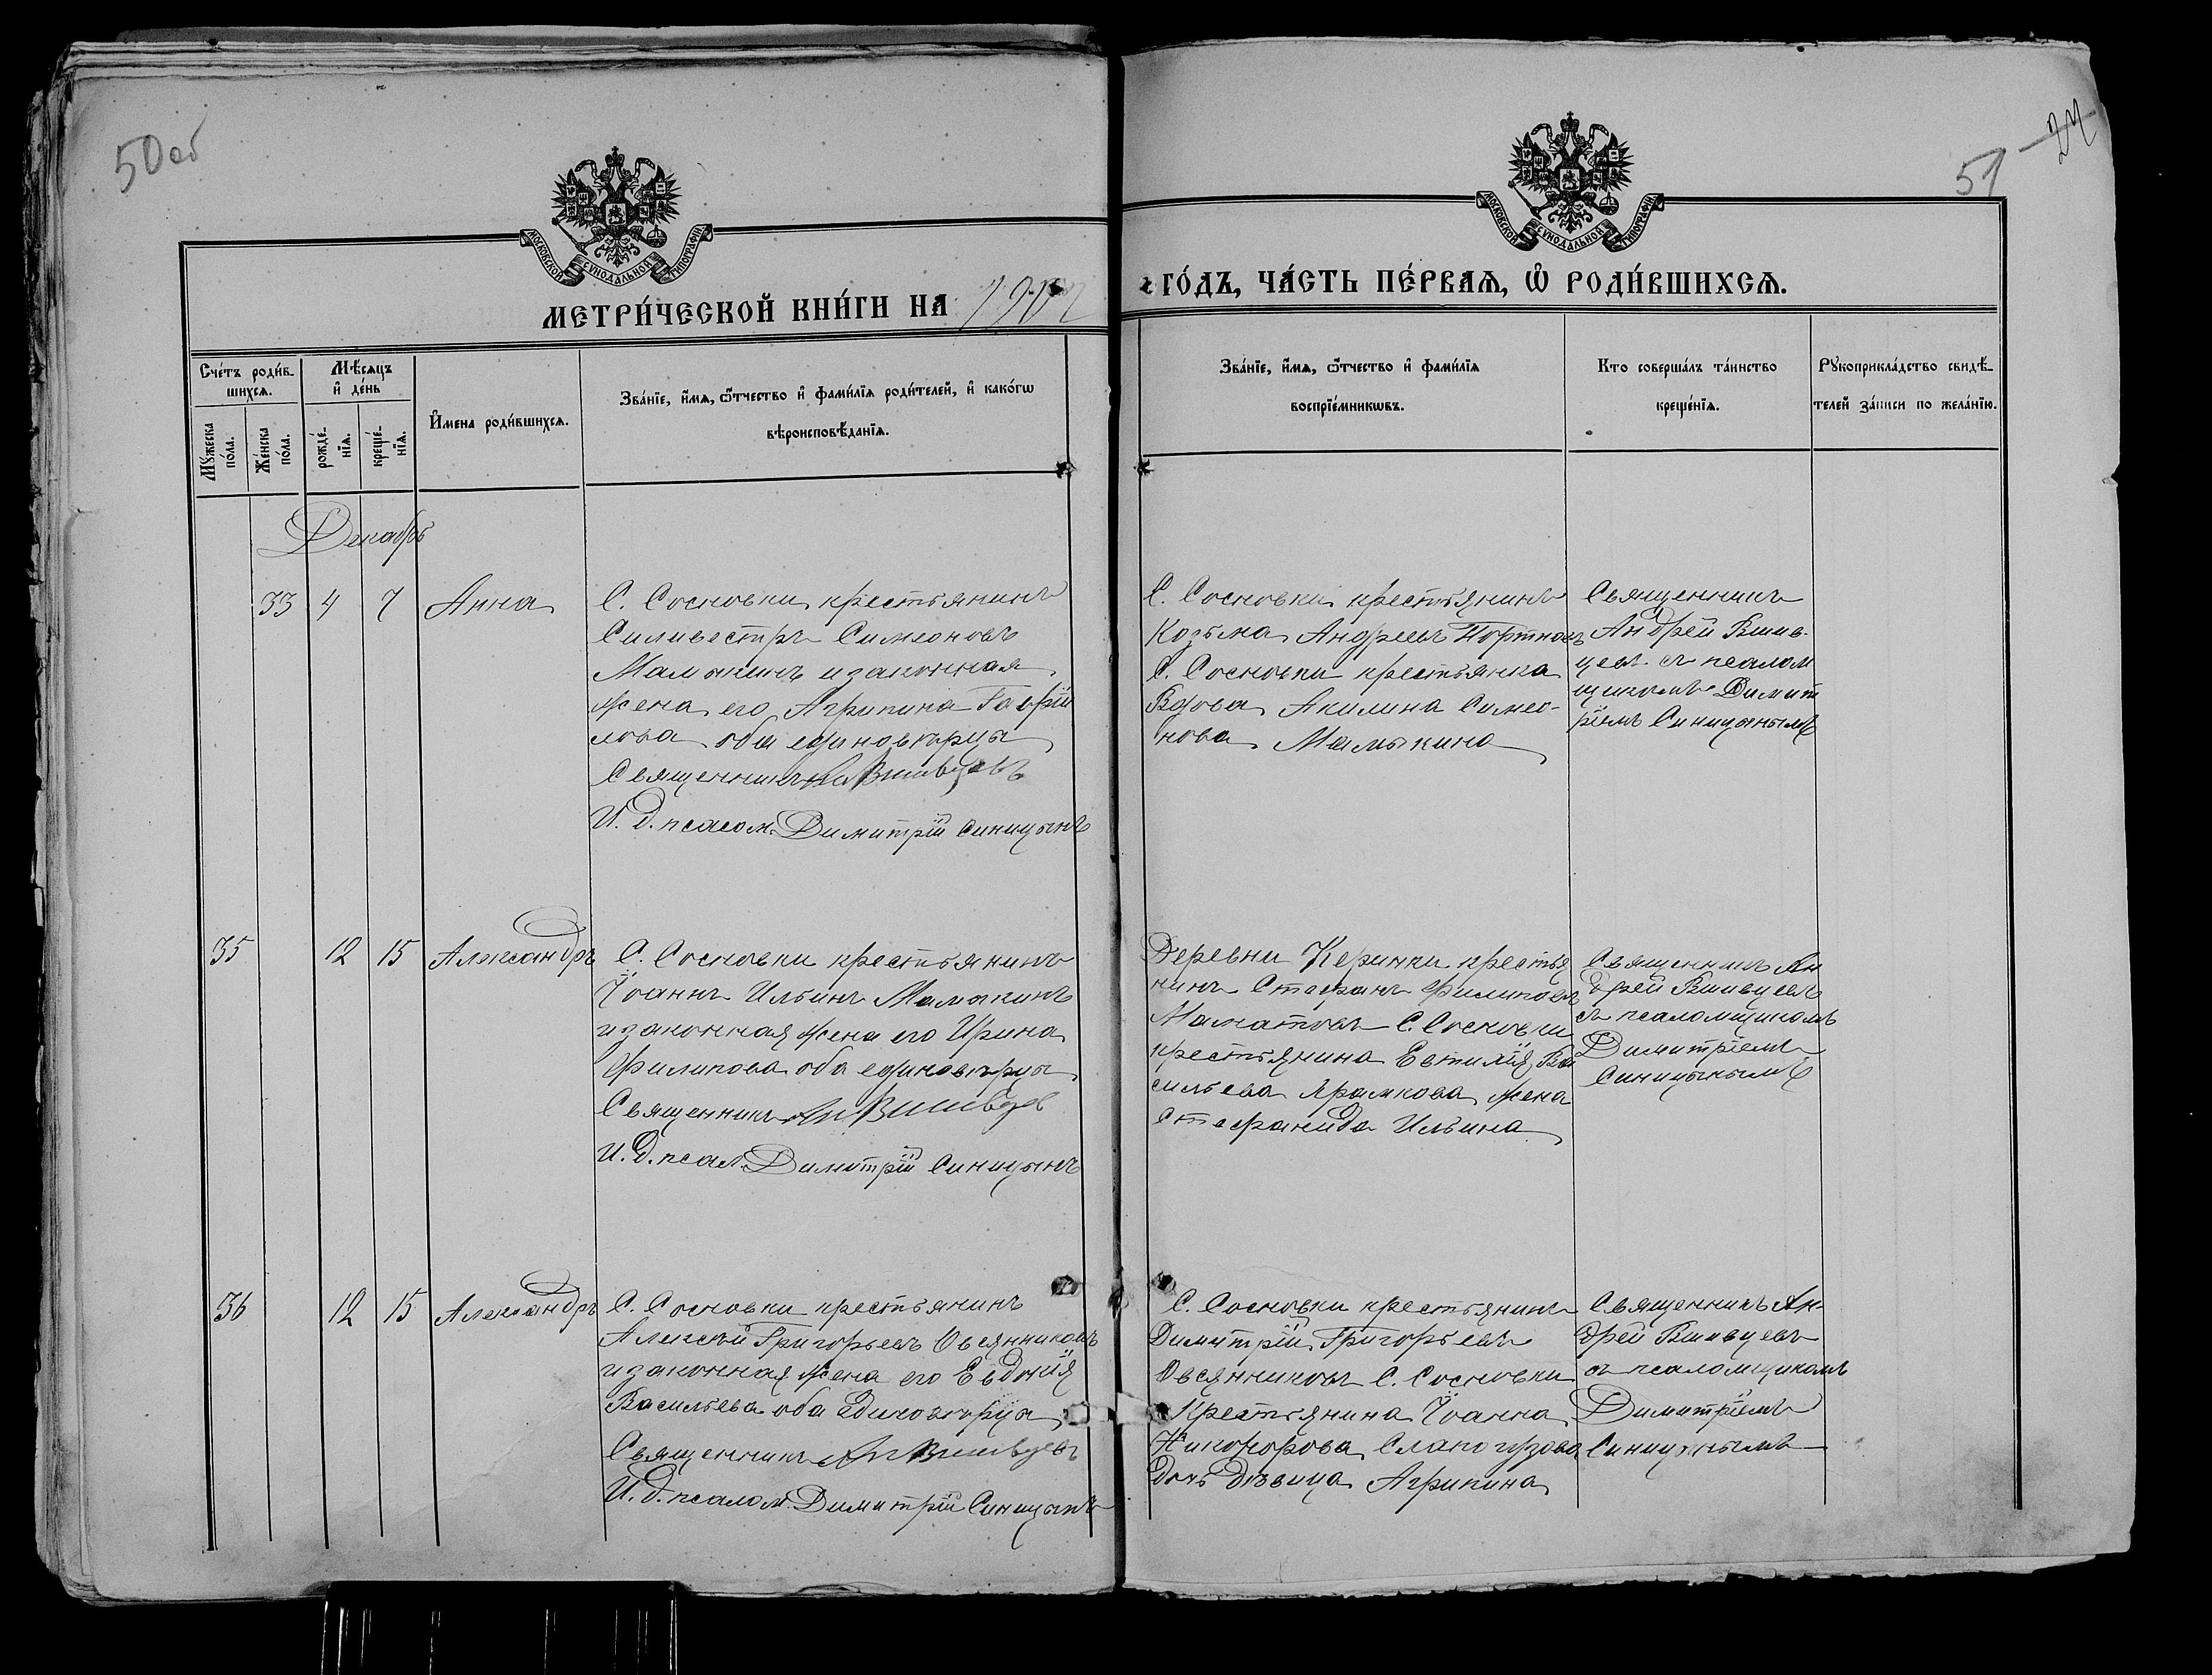 50 об
51
24
МОСКОВСКОЙ СѴНОДАЛЬНОЙ ТИПОГРАФІИ
МОСКОВСКОЙ СѴНОДАЛЬНОЙ ТИПОГРАФІИ
МЕТРИ́ЧЕСКОЙ КНИ́ГИ НА
ГО́ДЪ, ЧА́СТЬ ПЕ́РВАѦ, Ѽ РОДИ́ВШИХСѦ.
Сче́тъ роди́в-
шихсѧ.
Мꙋ́жеска
по́ла.
Же́нска
по́ла.
Мѣ́сѧцъ
и҆ де́нь
рожде́-
нїѧ.
креще́-
нїѧ.
И҆мена роди́вшихсѧ.
Зва́нїе, и҆́мѧ, ѻ҆́тчество и҆ фами́лїѧ роди́телей, и҆ како́гѡ
вѣроисповѣ́данїѧ.
Зва́нїе, и҆́мѧ, ѻ҆́тчество и҆ фами́лїѧ
воспрїе́мникѡвъ.
Кто соверша́лъ та́инство
креще́нїѧ.
Рꙋкоприкла́дство свидѣ́-
телей за́писи по жела́нїю.
Декабрь
33 4 7 Анна
С. Сосновки крестьянинъ
Силивестръ Симеоновъ
Мамыкинъ и законная
жена его Агрипина Гаврiи
лова оба единоверцы
Священникъ Ан Вшивцевъ
И. д. псалом. Димитрiй Синицынъ
С. Сосновки крестьянинъ
Козьма Андреевъ Портновъ
С. Сосновки крестьянка
Вдова Акилина Симео-
нова Мамыкина
Священникъ
Андрей Вшив-
цевъ съ псалом
щикомъ Димит
рiемъ Синицынымъ
35 12 15 Александръ
С. Сосновки крестьянинъ
Iоаннъ Ильинъ Мамыкинъ
и законная жена его Ирина
Филипова оба единоверцы
Священникъ Ан Вшивцев
И. д. псал. Димитрiй Синицынъ
Деревни Керинки крестья
нинъ Стефанъ Филиповъ
Маматовъ С. Сосновки
крестьянина Евтихiя Ва
сильева Храмкова жена
Стефанида Ильина
Священникъ Ан
дрей Вшивцевъ
съ псаломщикомъ
Димитрiемъ
Синицынымъ
36 12 15 Александръ
С. Сосновки крестьянинъ
Алексѣй Григорьевъ Овсянниковъ
и законная жена его Евдокiя
Васильева оба единоверцы
Священникъ Ан Вшивцевъ
И. д. псалом. Димитрiй Синицынъ
С. Сосновки крестьянинъ
Димитрiй Григорьевъ
Овсянниковъ С. Сосновки
Крестьянина Iоанна
Никонорова Слапогузова
дочь девица Агрипина
Священникъ Ан-
дрей Вшивцевъ
съ псаломщикомъ
Димитрiемъ
Синицынымъ